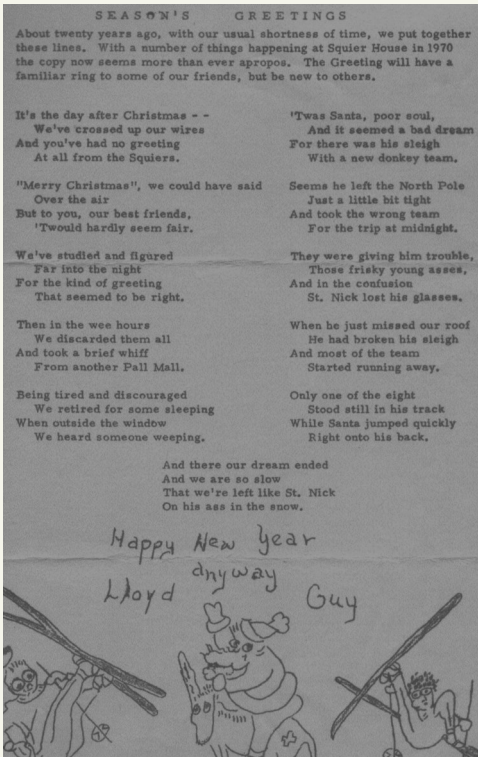 SEASON'S GREETINGS
About twenty years ago, with our usual shortness of time, we put together
these lines. With a number of things happening at Squier House in 1970
the copy now seems more than ever apropos. The Greeting will have a
familiar ring to some of our friends, but be new to others.
It's the day after Christmas - -
We've crossed up our wires
And you've had no greeting
At all from the Squiers.
"Merry Christmas", we could have said
Over the air
But to you, our best friends,
'Twould hardly seem fair.
We've studied and figured
Far into the night
For the kind of greeting
That seemed to be right.
Then in the wee hours
We discarded them all
And took a brief whiff
From another Pall Mall.
Being tired and discouraged
We retired for some sleeping
When outside the window
We heard someone weeping.
'Twas Santa, poor soul,
And it seemed a bad dream
For there was his sleigh
With a new donkey team.
Seems he left the North Pole
Just a little bit tight
And took the wrong team
For the trip at midnight.
They were giving him trouble,
Those frisky young asses,
And in the confusion
St. Nick lost his glasses.
When he just missed our roof
He had broken his sleigh
And most of the team
Started running away.
Only one of the eight
Stood still in his track
While Santa jumped quickly
Right onto his back.
And there our dream ended
And we are so slow
That we're left like St. Nick
On his ass in the snow.
Happy New Year
anyway
Lloyd Guy